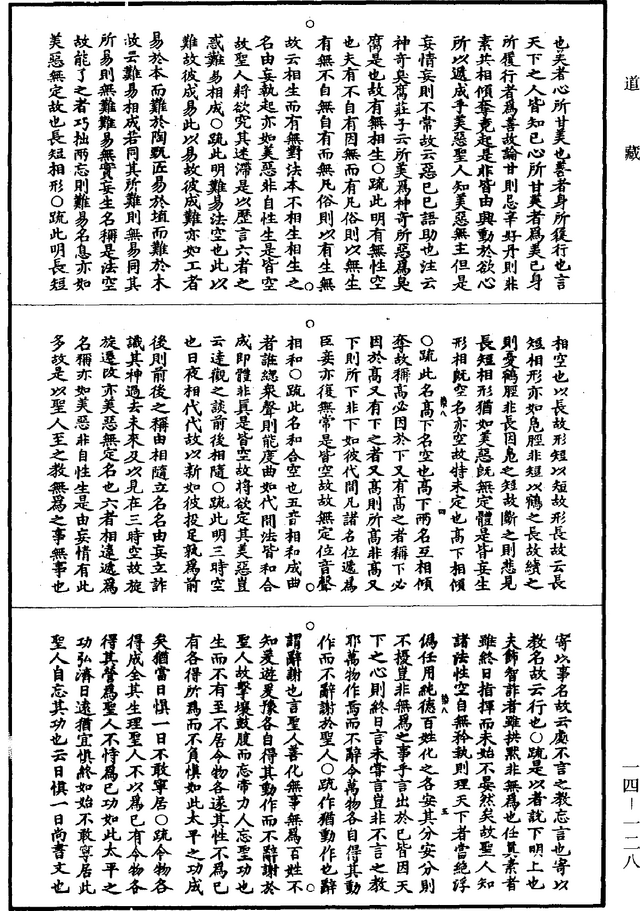 道藏
也美者心所甘美也善者身所履行也言
天下之人皆知己心所甘美者爲美己身
所履行者爲善故論甘則忌辛好丹則非
素共相傾奪競起是非皆由興動於欲心
所以遞成乎美惡聖人知美惡無主但是
妄情妄則不常故云惡已已語助也注云
神奇臭腐莊子云所美爲神奇所惡爲臭
腐是也故有無相生○疏此明有無性空
也夫有不自有因無而有凡俗則以無生
有無不自無自有而無凡俗則以有生無
故云相生而有無對法本不相生相生之
名由妄執起亦如美惡非自性生是皆空
故聖人將欲究其迷滯是以歷言六者之
惑難易相成○疏此明難易法空也此以
難故彼成易此以易故彼成難亦如工者
易於本而難於陶甄匠易於埴而難於木
故云難易相成若同其所難則無易同其
所易則無難難易無實妄生名稱是法空
故能了之者巧拙兩忘則難易名息亦如
美惡無定故也長短相形○疏此明長短
相空也以長故形短以短故形長故云長
短相形亦如鳧脛非短以鶴之長故續之
則憂鶴脛非長因鳧之短故斷之則悲見
長短相形猶如美惡既無定體是皆妄生
形相既空名亦空故特未定也高下相傾
○疏此名高下名空也高下兩名互相傾
奪故稱高必因於下又有高之者稱下必
因於高又有下之者又高則所高非高又
下則所下非下如彼代間凡諸名位遞爲
臣妾亦復無常是皆空故故無定位音聲
相和○疏此名和合空也五音相和成曲
者誰惚衆聲則能度曲如代間法皆和合
成即體非真是皆空故將欲定其美惡豈
云達觀之談前後相隨○疏此明三時空
也日夜相代代故以新如彼投足孰爲前
後則前後之稱由相隨立名名由妄立詐
識其神過去未來及以見在三時空故旋
旋遷改亦美惡無定名也六者相違遞爲
名稱亦如美惡非自性生是由妄情有此
多故是以聖人至之教無爲之事無事也
寄以事名故云處不言之教忘言也寄以
教名故云行也○疏是以者說下明上也
夫飾智詐者雖拱默非無爲也任真素者
雖終日指揮而未始不晏然矣故聖人知
諸法性空自無矜執則理天下者當絕浮
僞任用純德百姓化之各安其分安分則
不擾豈非無爲之事乎言出於己皆因天
下之心則終日言未嘗言豈非不言之教
耶萬物作焉而不辭令萬物各自得其動
作而不辭謝於聖人○疏作猶動作也辭
謂辭謝也言聖人善化無事無爲百姓不
知愛遊夏豫各自得其動作而不辭謝於
聖人故擊壤鼓腹而忘帝力人忘聖功也
生而不有至不居令物各遂其性不爲己
有各得所爲而不負恃如此太平之功成
矣猶當日慎一日不敢寧居○疏令物各
得成全其生理聖人不以爲己有令物各
得其營爲聖人不恃爲己功如此太平之
功弘濟日遠猶宜慎終如始不敢寧居此
聖人自忘其功也云日慎一日尚書文也
給八
四
給八
五
一四－一二八